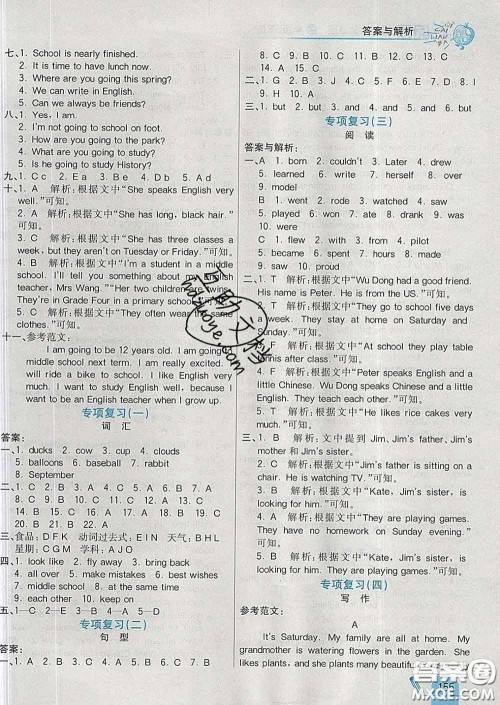 答案与解析
七、1. School is nearly finished.
2. It is time to have lunch now.
3. Where are you going this spring?
4. We can write in English.
5. Can we always be friends?
八、1. Yes, I am.
2. I'm not going to school on foot.
3. How are you going to the park?
4. What are you going to study?
5. Is he going to study History?
九、1. C c 2. B b 3. E e 4. D d 5. A d
十、1. A 解析:根据文中“She speaks English very
well.”可知。
2. A 解析:根据文中“She has long, black hair.”
可知。
3. C 解析:根据文中“She has three classes a
week, but they aren't on Tuesday or Friday.”可知。
4. B 解析:根据文中“I'm a student in a middle
school. I'll tell you something about my English
teacher, Mrs Wang.” “Her two children are twins.
They're in Grade Four in a primary school.”可知。
5. C 解析:根据文中“They often wear the same
clothes.”可知。
十一、参考范文:
I am going to be 12 years old. I am going to
middle school next term. I am really excited. I
will ride a bike to school. I like English very
much. I want to study English well, because I
want to be an English teacher when I grow up.
专项复习(一)
词 汇
答案:
一、1. ducks 2. cow 3. flying 4. clouds
5. balloons 6. baseball 7. rabbit
8. September
二、1. A 2. C 3. A 4. C 5. C 6. D 7. C
8. D 9. C 10. A 11. C 12. A 13. C
14. B 15. A 16. C 17. B 18. C 19. C
20. B 21. A 22. A
三、食品:DFK 动词过去式:EIN 天气:BHL
星期:CGM 学科:AJO
四、1. look like 2. fly away 3. bring back
4. all over 5. make mistakes 6. best wishes
7. middle school 8. at the same time
9. take care of
五、1—C 2—E 3—A 4—B 5—D
专项复习(二)
句 型
答案:
一、1. A 2. B 3. B 4. B 5. C 6. A 7. B
8. C 9. C 10. B 11. B 12. C 13. C
14. A 15. C
二、1. C 2. F 3. G 4. A 5. J 6. D 7. B 8. I
9. H 10. A
三、1. but 2. and 3. and 4. and 5. and 6. but
专项复习(三)
阅 读
答案与解析:
一、A 1. born 2. couldn't 3. Later 4. drew
5. learned 6. wrote 7. herself 8. wrote
9. model
B 1. went 2. rode 3. watched 4. saw
5. played 6. won 7. ate 8. drank 9. were
10. was
C 1. flew 2. with 3. from 4. pilot
5. became 6. spent 7. hours 8. made
9. saw 10. proud
二、1. T 解析:根据文中“Wu Dong has a good friend.
His name is Peter. He is from the US.”可知。
2. T 解析:根据文中“They go to school five days
a week. They don't go to school on Saturday and
Sunday.”可知。
3. F 解析:根据文中“At school they play table
tennis after class.”可知。
4. F 解析:根据文中“Peter speaks English and a
little Chinese. Wu Dong speaks Chinese and a
little English.”可知。
5. T 解析:根据文中“He likes rice cakes very
much.”可知。
三、1. B 解析:文中提到 Jim, Jim's father, Jim's
mother, Jim's sister。
2. A 解析:根据文中“Jim's father is sitting on a
chair. He is watching TV.”可知。
3. B 解析:根据文中“Kate, Jim's sister, is
looking for him.”可知。
4. A 解析:根据文中“They are playing games.
They have no homework on Sunday evening.”
可知。
5. C 解析:根据文中“Kate, Jim's sister, is
looking for him. They are playing games.”可知。
专项复习(四)
写 作
参考范文:
A
It's Saturday. My family are all at home. My
grandmother is watering flowers in the garden. She
likes plants, and she has many beautiful
155
答案圈
MXQE.COM